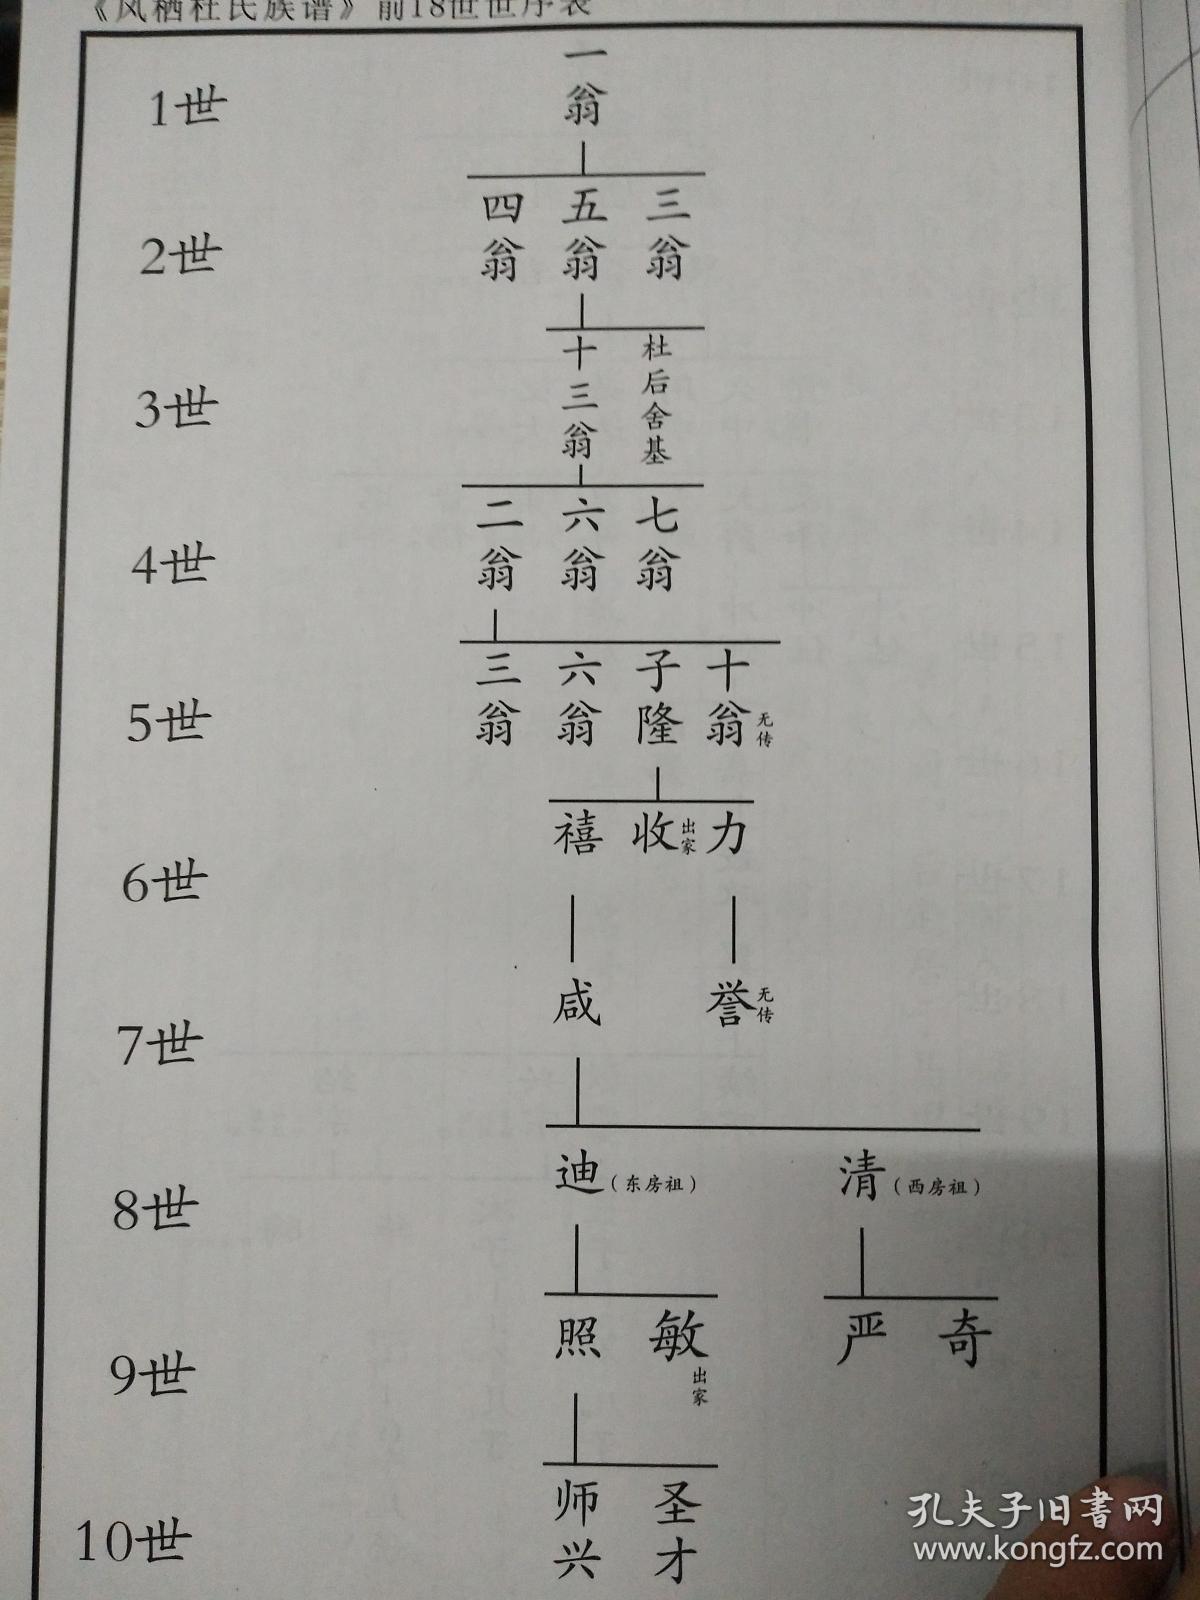 《凤栖杜氏族谱》前18世世序表
1世
一翁
2世
四翁 五翁 三翁
3世
十三翁 杜后舍基
4世
二翁 六翁 七翁
5世
三翁 六翁 子隆 十翁 无传
6世
禧 收 出家 力
7世
咸 誉 无传
8世
迪(东房祖) 清(西房祖)
9世
照 敏 出家 严 奇
10世
师兴 圣才
孔夫子旧书网
www.kongfz.com